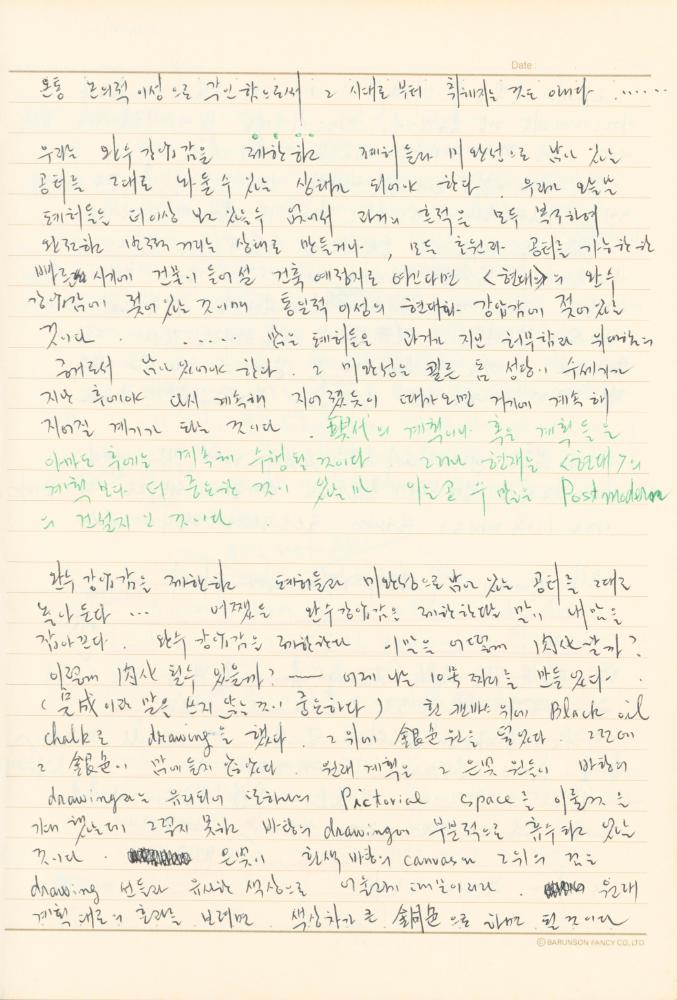 Date :
온통 논의적 이성으로 각인함으로써 그 시대로 부터 취해지는 것도 아니다 ......
우리는 완수 강박감을 제한하고 폐허들과 미완성으로 남아 있는
공터를 그대로 놔둘 수 있는 상태가 되어야 한다. 우리가 오늘날
폐허들을 더이상 보고 있을 수 없어서 과거의 흔적을 모두 복구하여
완전하고 거리는 상태로 만들거나, 모든 초원과 공터를 가능한 한
빠른 시기에 건물이 들어설 건축 예정지로 여긴다면 <현대>의 완수
강박감에 젖어 있는 것이며 통일적 이성의 현대화 강박감에 젖어 있는
것이다. ..... 많은 폐허들은 과거가 지닌 허무함과 위대함의
증거로서 남아 있어야 한다. 그 미완성은 쾰른 돔 성당이 수세기가
지난 후에야 다시 계속해 지어졌듯이 때가 오면 거기에 계속해
지어질 계기가 되는 것이다. 現代의 계획이나 혹은 계획들은
아마도 후에는 계속해 수행될 것이다. 그러나 현재는 <현대>의
계획보다 더 중요한 것이 있으니 이는 곧 수많은 Postmodern
의 건설지인 것이다.
완수 강박감을 제한하고 폐허들과 미완성으로 남아 있는 공터를 그대로
놓아 둔다 ... 어쨌든 완수강박감을 제한한다는 말이 내 맘을
잡아 끈다. 완수 강박감을 제한한다 이 말을 어떻게 肉化할까?
어떻게 肉化될 수 있을까? — 어제 나는 10폭 짜리를 만들었다.
(完成이라는 말은 쓰지 않는 것이 중요하다) 흰 캔바스 위에 Black oil
chalk로 drawing을 했다. 그 위에 銀色 원을 덮었다. 그런데
그 銀色이 맘에 들지 않았다. 원래 계획은 그 은빛 원들이 바탕의
drawing과는 유리되어 또하나의 Pictorial space를 이룰 것을
기대했는데 그렇지 못하고 바탕의 drawing에 부분적으로 흡수하고 있는
것이다. 은빛이 흰색 바탕의 canvas와 그 위의 검은
drawing 선들과 유사한 색상으로 어울리기 때문이리라. 원래
계획대로의 효과를 보려면 색상차가 큰 銅色으로 하면 될 것이다
© BARUNSON FANCY CO., LTD.